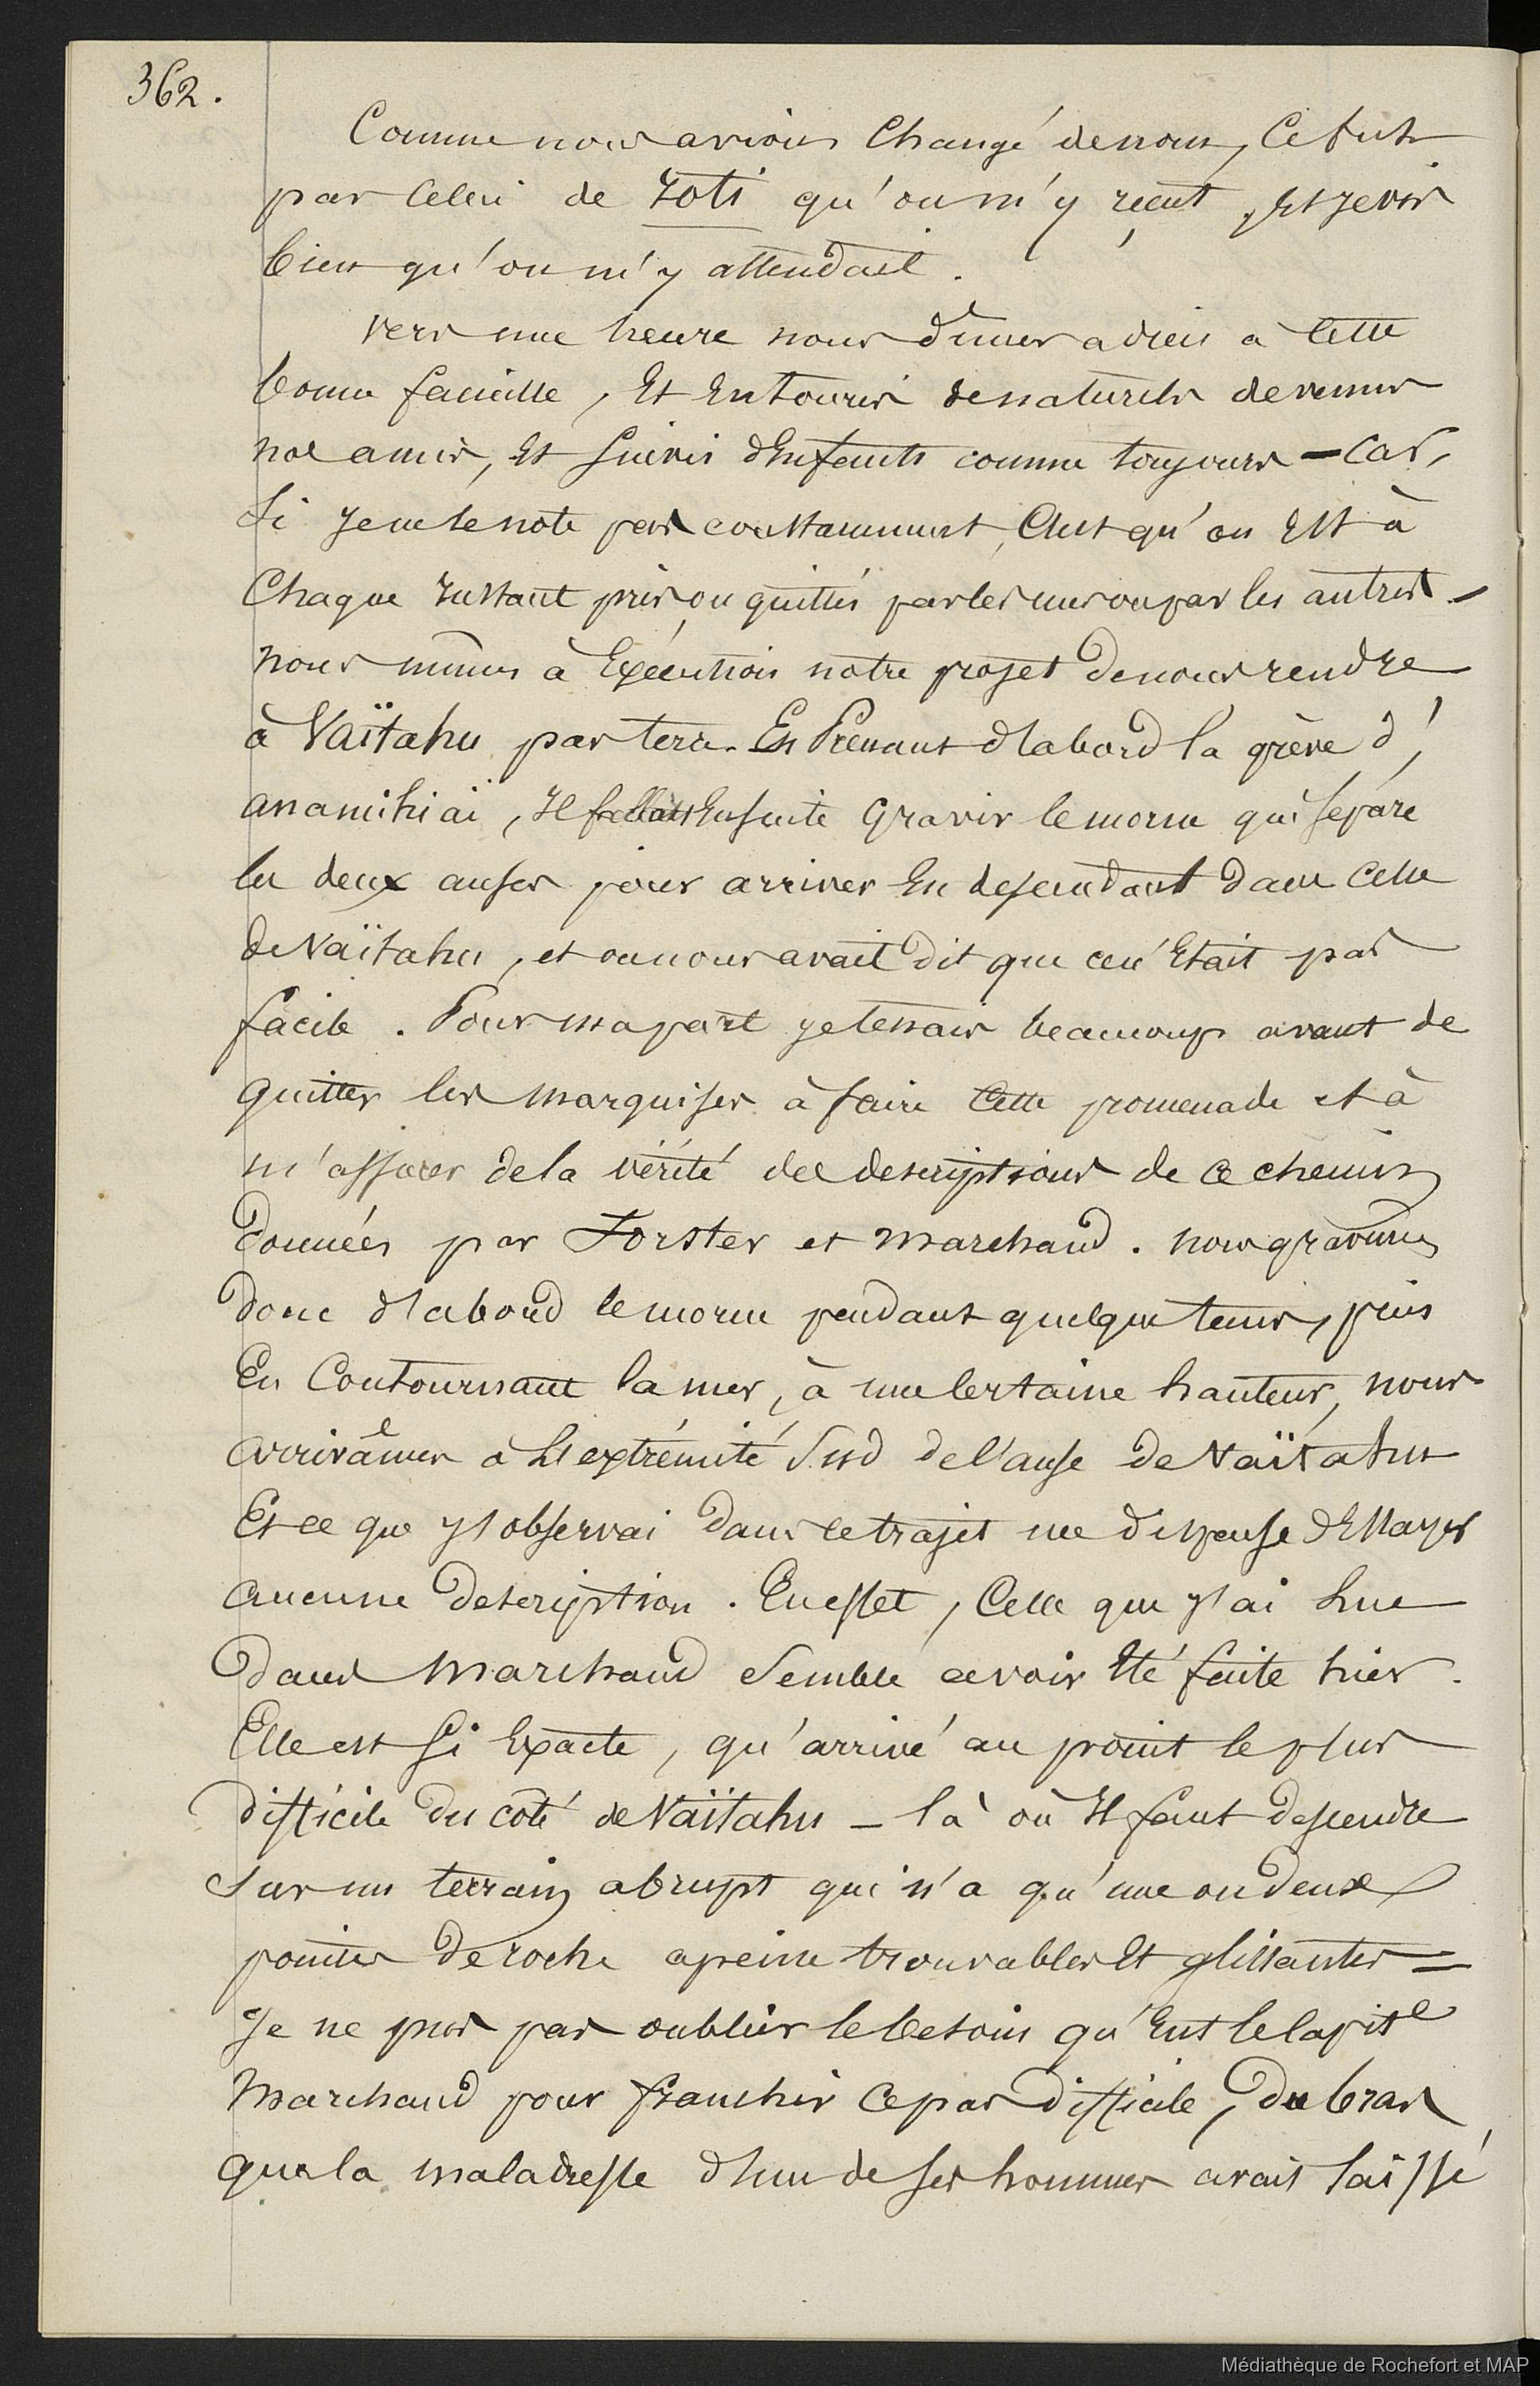 362.
Comme nous avions Changé de nom, Ce fut
par Celui de Toti qu'on m'y reçut, Et je vis
bien qu'on m'y attendait.
vers une heure nous dîmes adieu à Cette
bonne famille, Et Entourés de naturels devenus
nos amis, Et suivis d'Enfants comme toujours - Car,
si je ne le note pas constamment, C'est qu'on Est à
Chaque Instant pris, ou quittés par les uns ou par les autres -
nous mîmes à Exécution notre projet de nous rendre
à Vaïtahu par terre. En Prenant d'abord la grève d'
anamihiaï, Il fallait Ensuite Gravir le morne qui sépare
les deux anses pour arriver En descendant dans Celle
de Vaïtahu, et on nous avait dit que ce n'Etait pas
facile. Pour ma part je tenais beaucoup avant de
quitter les marquises à faire Cette promenade et à
m'assurer de la vérité des descriptions de ce chemin
données par Forster et marchand. nous gravîmes
donc d'abord le morne pendant quelque tems, puis
En Contournant la mer, à une Certaine hauteur, nous
arrivâmes à L'extrémité Sud de l'anse de Vaïtahu
Et ce que j'observai dans ce trajet me dispense d'Essayer
aucune description. En effet, Celle que j'ai lue
dans Marchand Semble avoir Eté faite hier.
Elle est si Exacte, qu'arrivé au point le plus
difficile du côté de Vaïtahu - là où Il faut descendre
sur un terrain abrupt qui n'a qu'une ou deux
pointes de roche apeine trouvables Et glissantes =
Je ne pus pas oublier le besoin qu'Eut le Capite
Marchand pour franchir Ce pas difficile, du bras
que la maladresse d'un de ses hommes avait laissé
Médiathèque de Rochefort et MAP